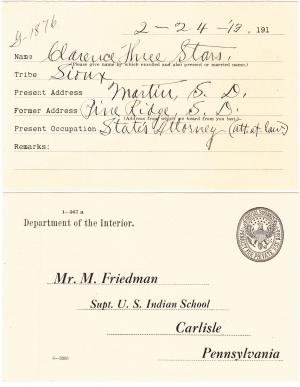 G-1876
2-24-'13. 191
Name Clarence Three Stars.
(Please give name by which enrolled and also present or married name.)
Tribe Sioux
Present Address Martin, S. D.
Former Address Pine Ridge S. D.
(Address from where we heard from you last.)
Present Occupation State's Attorney (att. at law)
Remarks:
1—367 a
Department of the Interior.
Mr. M. Friedman
Supt. U. S. Indian School
Carlisle
Pennsylvania